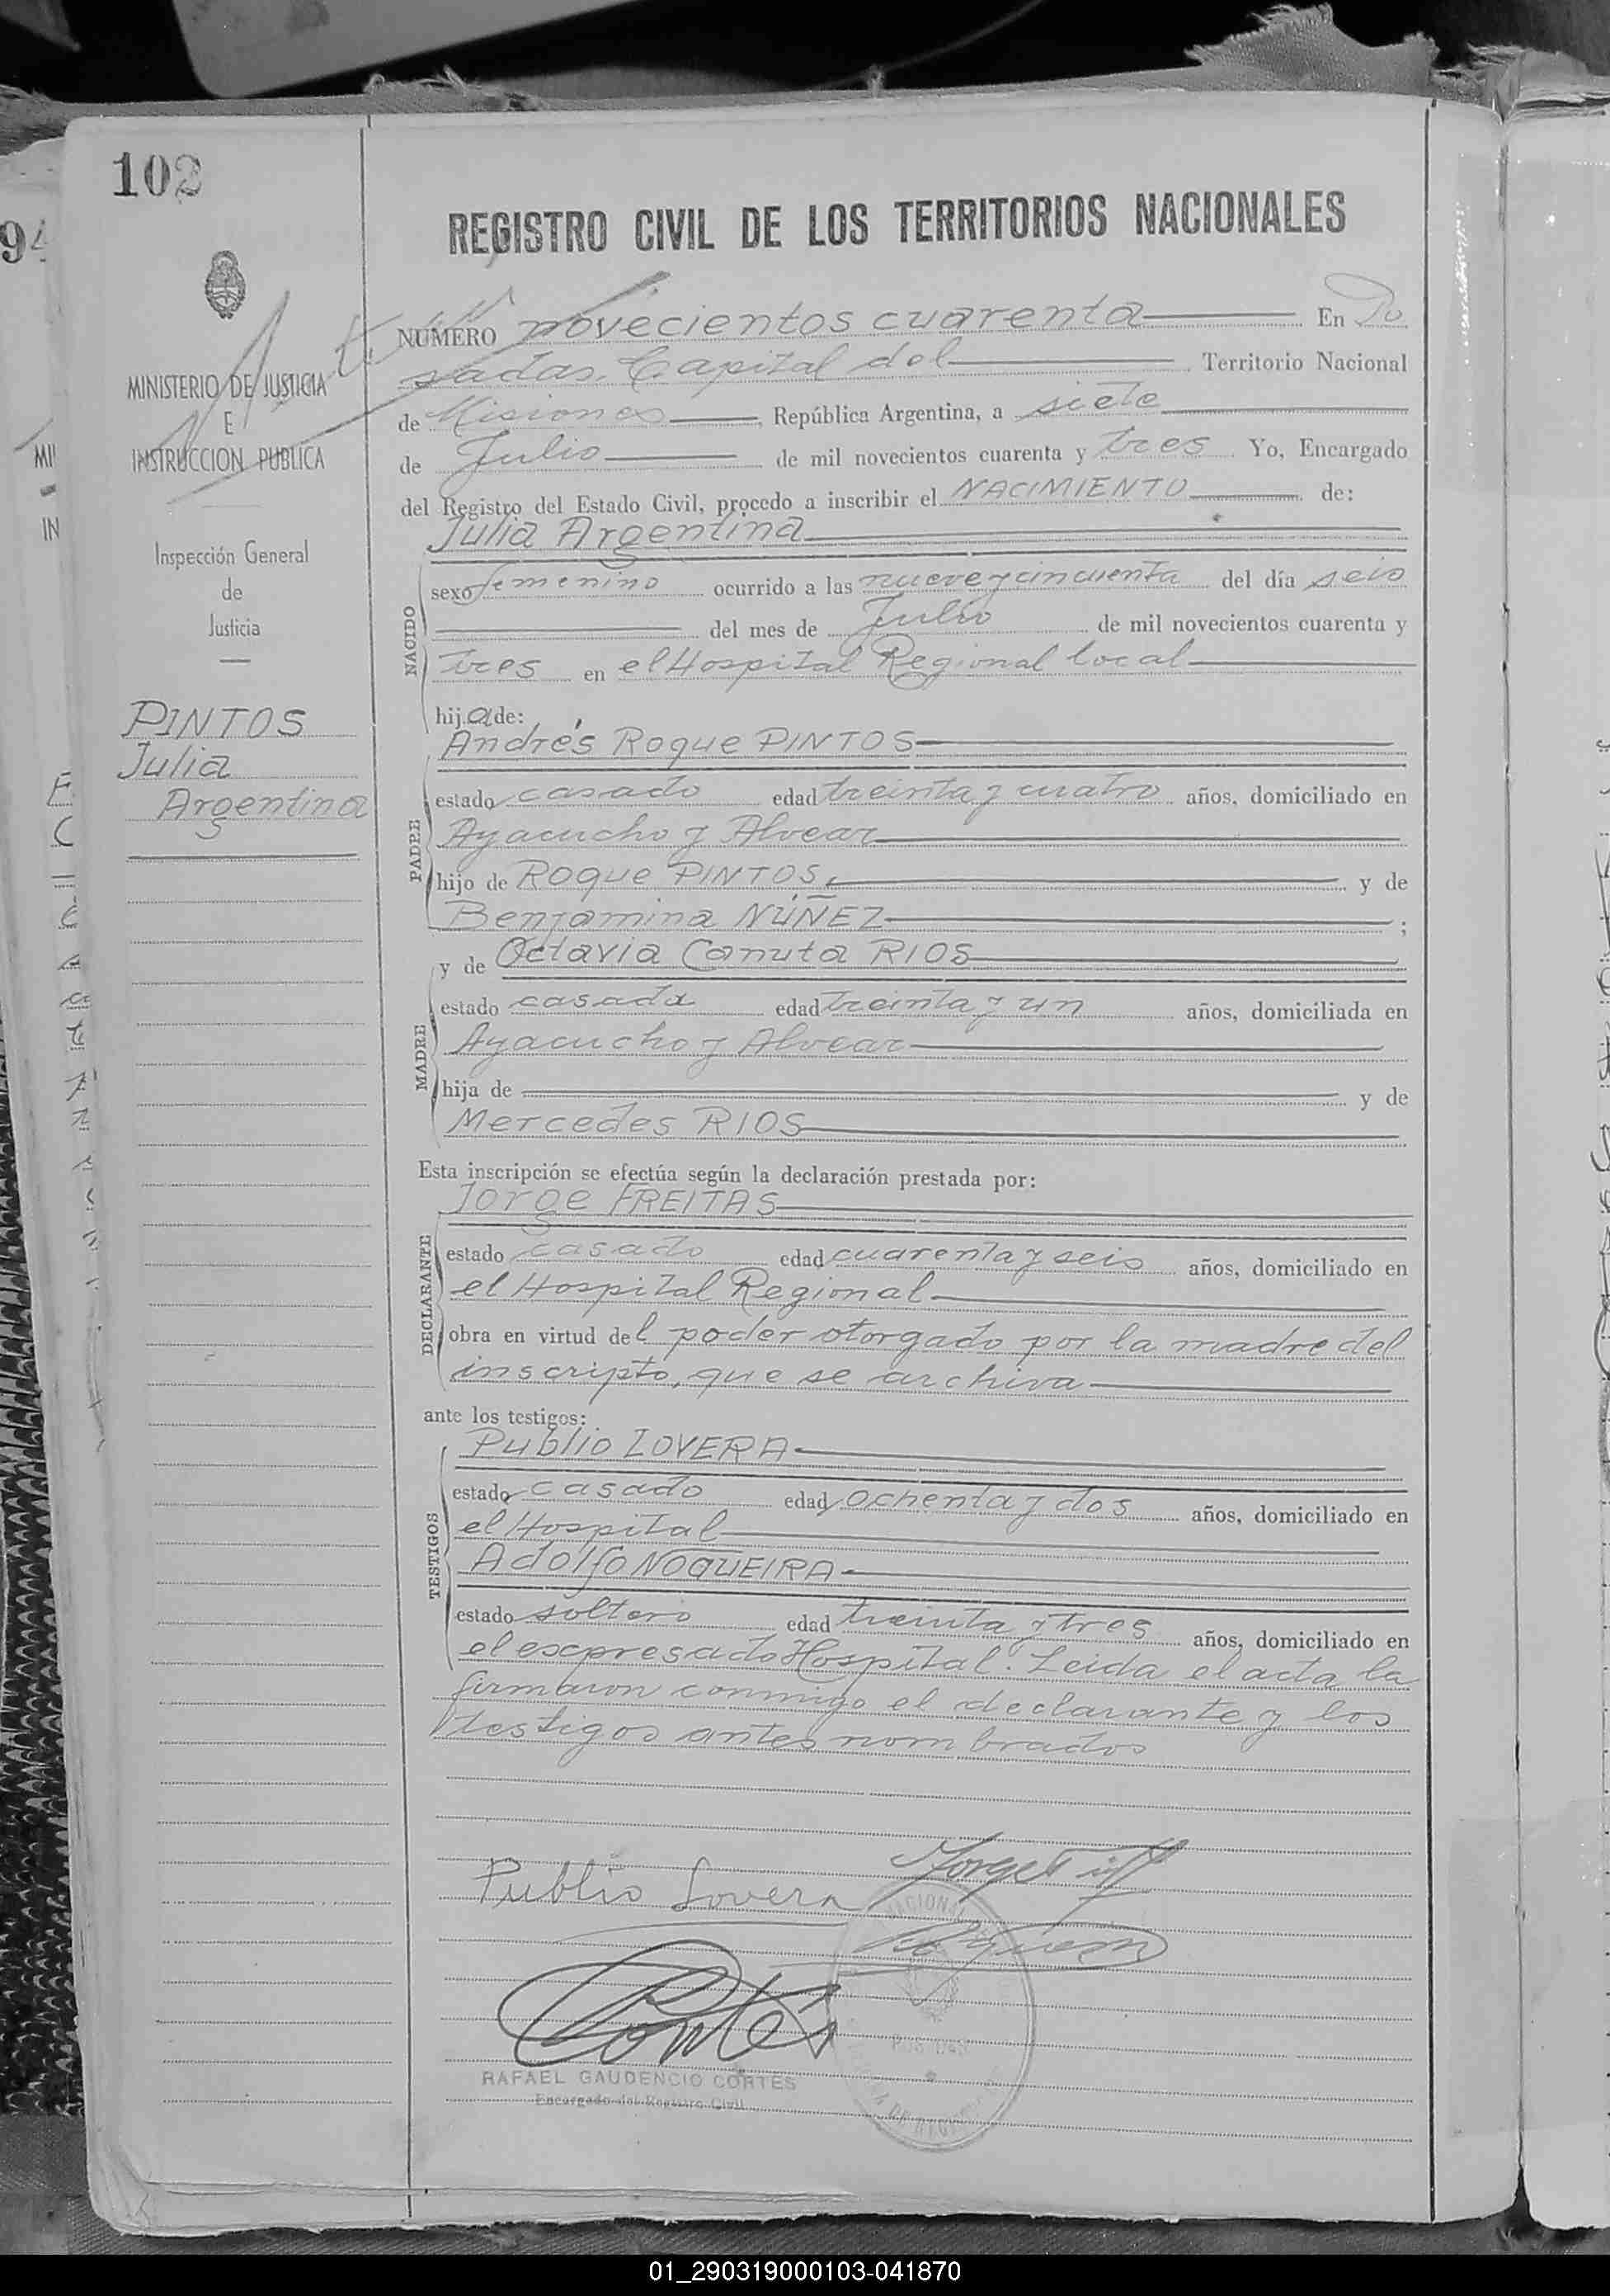 102
REGISTRO CIVIL DE LOS TERRITORIOS NACIONALES
MINISTERIO DE JUSTICIA
E
INSTRUCCION PUBLICA
Inspección General
de
Justicia
PINTOS
Julia
Argentina
NUMERO novecientos cuarenta En Po
sadas, Capital del Territorio Nacional
de Misiones, República Argentina, a siete
de Julio de mil novecientos cuarenta y tres. Yo, Encargado
del Registro del Estado Civil, procedo a inscribir el NACIMIENTO de:
Julia Argentina
NACIDO
sexo femenino ocurrido a las nueve y cincuenta del día seis
del mes de Julio de mil novecientos cuarenta y
tres en el Hospital Regional local
hija de:
Andrés Roque PINTOS
PADRE
estado casado edad treinta y cuatro años, domiciliado en
Ayacucho y Alvear
hijo de Roque PINTOS, y de
Benjamina NÚÑEZ ;
y de Octavia Canuta RIOS
MADRE
estado casada edad treinta y un años, domiciliada en
Ayacucho y Alvear
hija de y de
Mercedes RIOS
Esta inscripción se efectúa según la declaración prestada por:
Jorge FREITAS
DECLARANTE
estado casado edad cuarenta y seis años, domiciliado en
el Hospital Regional
obra en virtud del poder otorgado por la madre del
inscripto, que se archiva
ante los testigos:
Publio LOVERA
TESTIGOS
estado casado edad ochenta y dos años, domiciliado en
el Hospital
Adolfo NOGUEIRA
estado soltero edad treinta y tres años, domiciliado en
el expresado Hospital. Leida el acta la
firmaron conmigo el declarante y los
testigos antes nombrados
Publio Lovera
Cortés
RAFAEL GAUDENCIO CORTES
Encargado del Registro Civil
NACIONAL
POSADAS
01_290319000103-041870